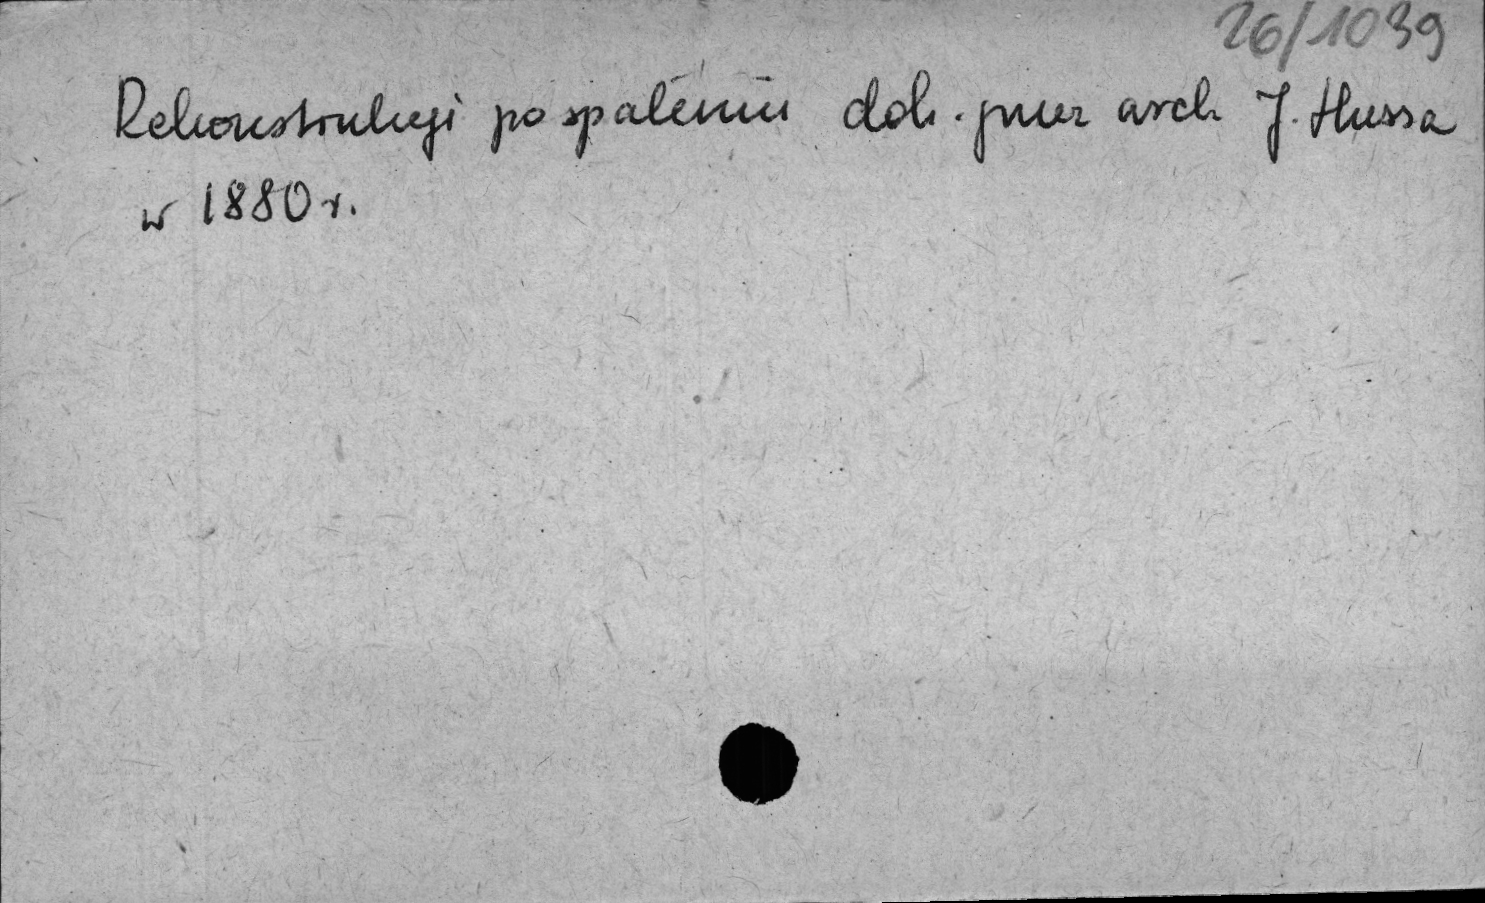 26/1039
Rekonstrukcji po spaleniu dok. przez arch J. Hussa
w 1880 r.